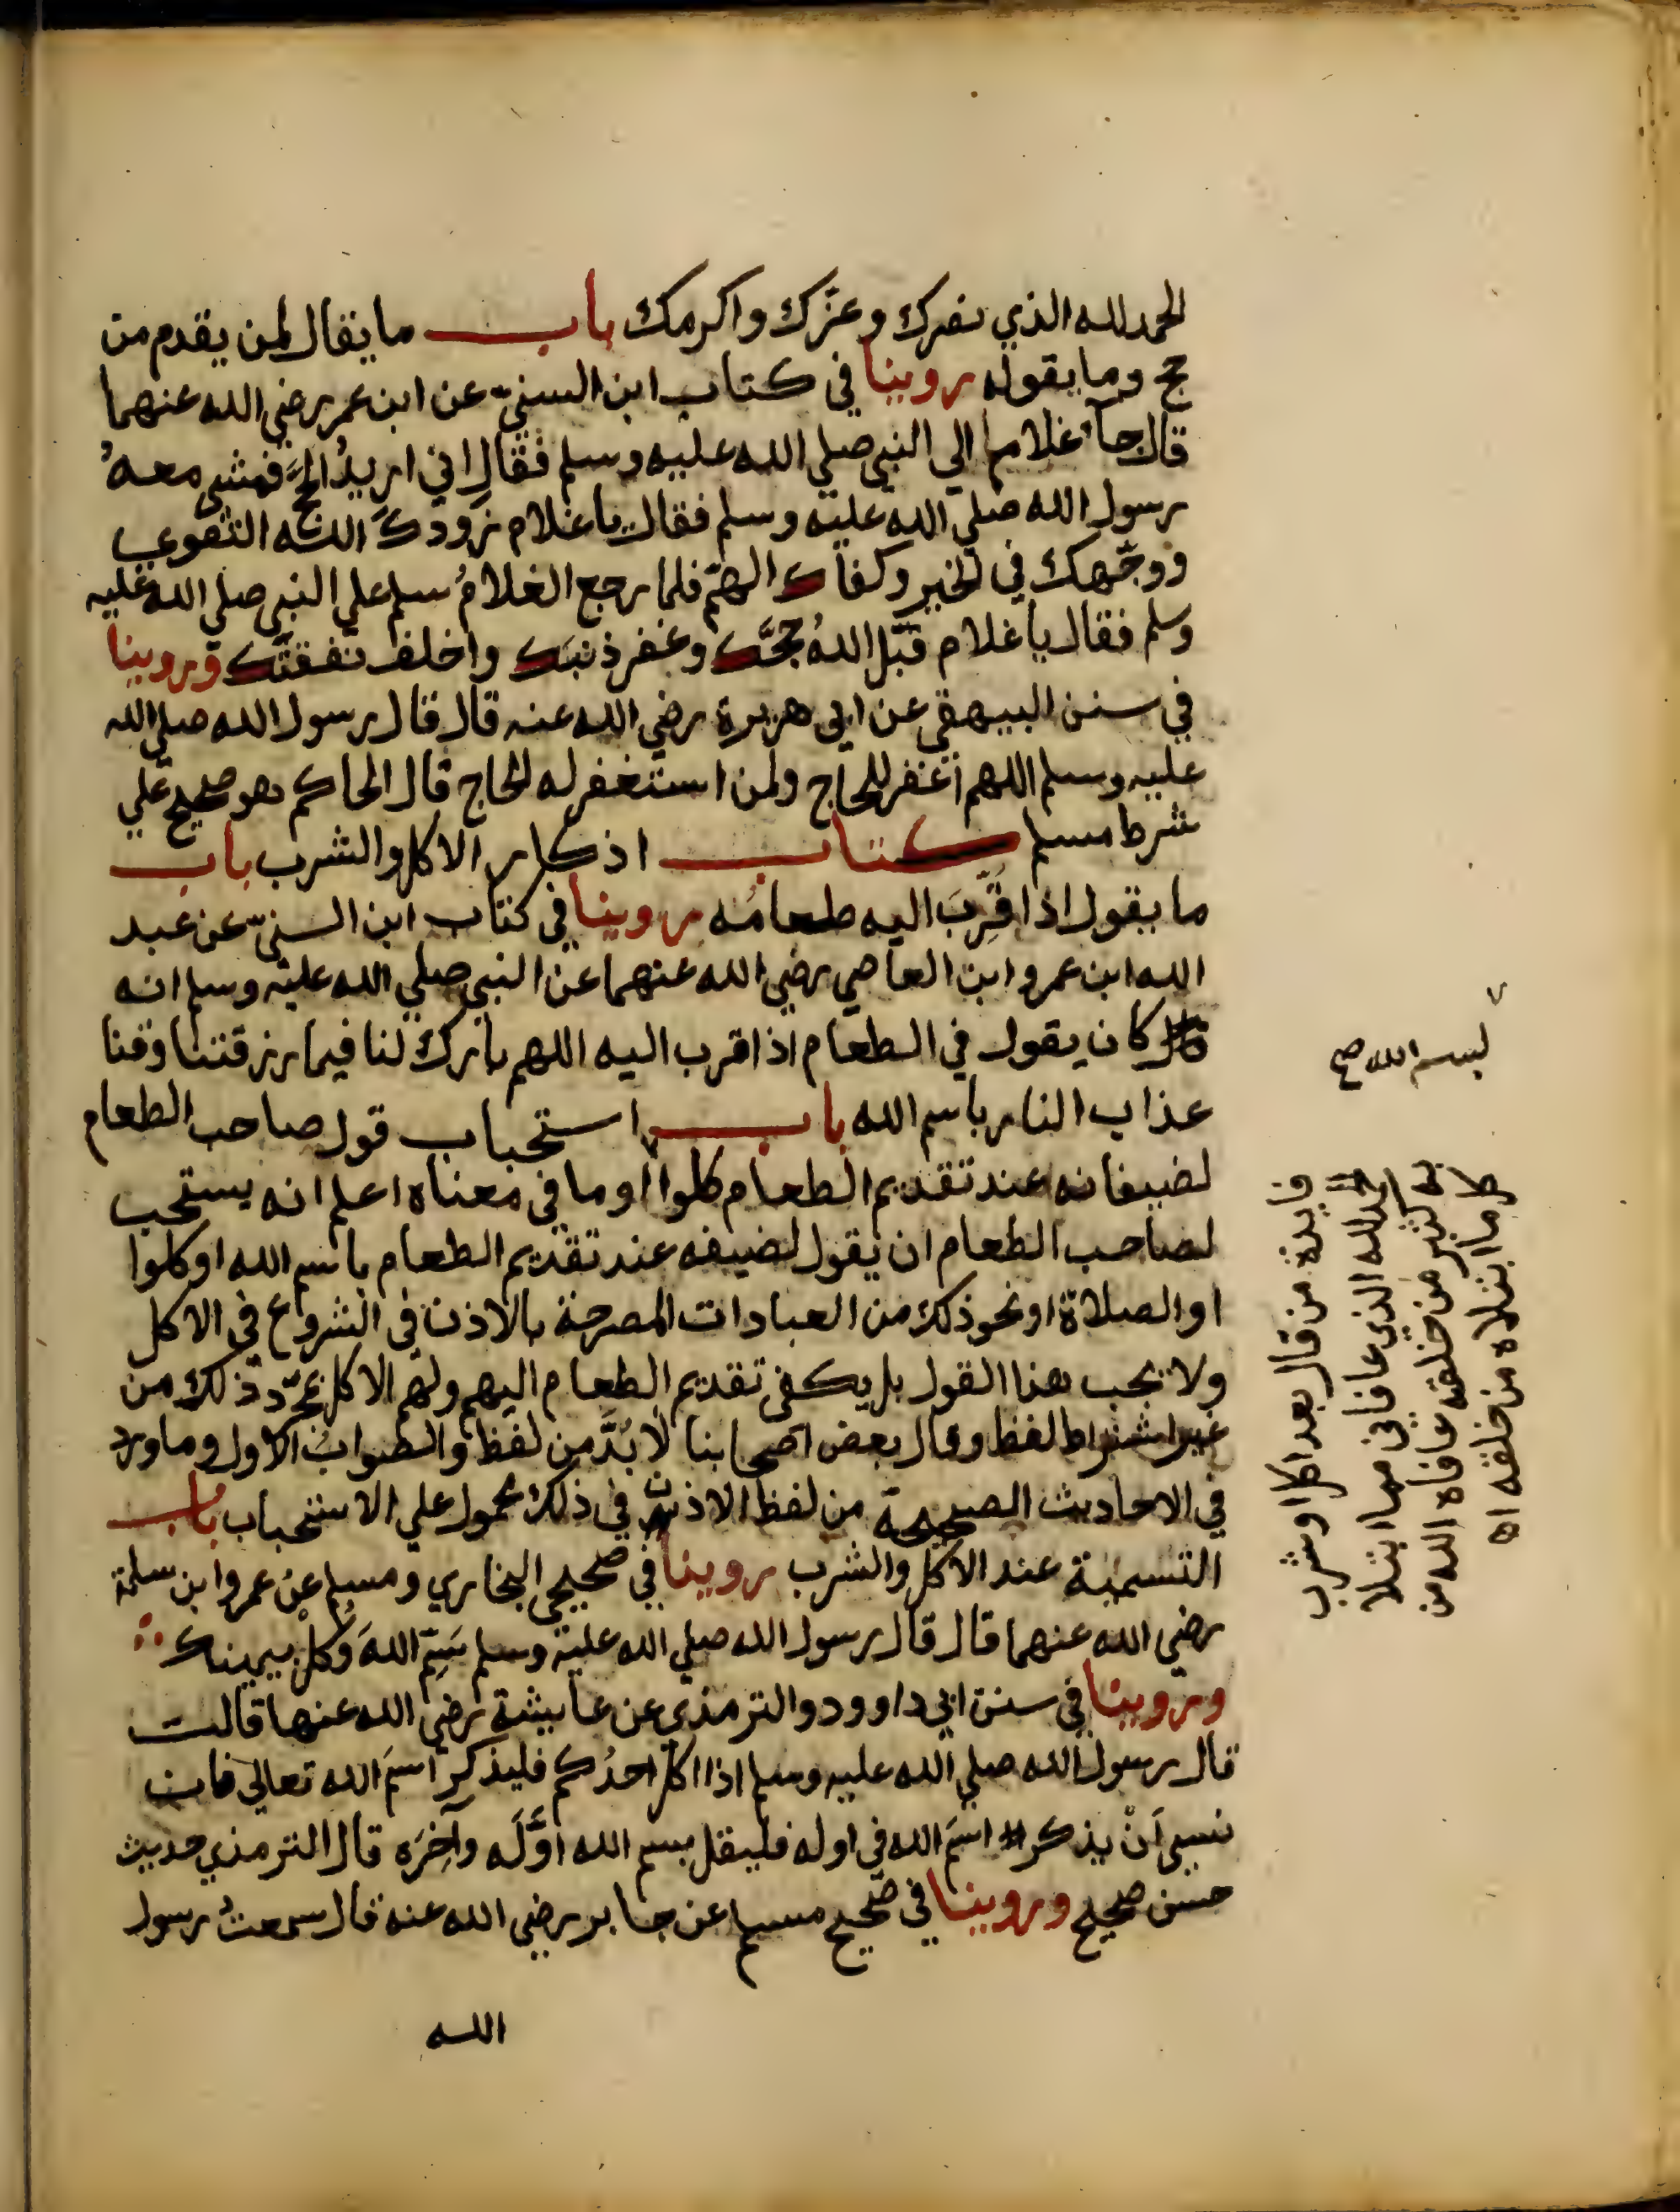 الحمد لله الذي نصرك وعزّك واكرمك باب ما يقال لمن يقدم من
حج وما يقوله روينا في كتاب ابن السنيّ عن ابن عمر رضي الله عنهما
قال جآء غلام الي النبي صلي الله عليه وسلم فقال اني اريدُ الحجَّ فمشي معهُ
رسول الله صلي الله عليه وسلم فقال يا غلام زودكَ اللهُ التقوي
ووجّهك في الخير وكفاك الهمّ فلما رجع الغلامُ سلم علي النبي صلي الله عليه
وسلم فقال يا غلام قبّل اللهُ حجَّك وغفر ذنبَك واخلف نفقتَك وروينا
في سنن البيهقي عن ابي هريرة رضي الله عنه قال قال رسول الله صلي الله
عليه وسلم اللهم اغفر للحاج ولمن استغفر له الحاج قال الحاكم هو صحيح علي
شرط مسلم كتاب اذكار الاكل والشرب باب
ما يقول اذا قُرِّبَ اليه طعامُه روينا في كتاب ابن السنيّ عن عبد
الله ابن عمرو ابن العاصي رضي الله عنهما عن النبي صلي الله عليه وسلم انه
كان يقول في الطعام اذا قرب اليه اللهم بارك لنا فيما رزقتنا وقنا
عذاب النار باسم الله باب استحباب قول صاحب الطعام
لضيفانه عند تقديم الطعام كلوا او ما في معناه اعلم انه يستحب
لصاحب الطعام ان يقول لضيفه عند تقديم الطعام باسم الله او كلوا
او الصلاة او نحو ذلك من العبادات المصرحة بالاذن في الشروع في الاكل
ولا يجب هذا القول بل يكفي تقديم الطعام اليهم ولهم الاكل بمجرّد ذلك من
غير اشتراط لفظ وقال بعض اصحابنا لا بُدَّ من لفظ والصوابُ الاول وما ورد
في الاحاديث الصحيحة من لفظ الاذن في ذلك محمول علي الاستحباب باب
التسمية عند الاكل والشرب روينا في صحيحي البخاري ومسلم عن عمرو ابن سلمة
رضي الله عنهما قال قال رسول الله صلي الله عليه وسلم سَمِّ اللهَ وكُلْ بيمينك
وروينا في سنن ابي داوود والترمذي عن عايشة رضي الله عنها قالت
قال رسول الله صلي الله عليه وسلم اذا اكل احدُكم فليذكر اسمَ الله تعالي فان
نسي اَنْ يذكر اسمَ الله في اوله فليقل بسم الله اوَّلَه وآخِرَه قال الترمذي حديث
حسن صحيح وروينا في صحيح مسلم عن جابر رضي الله عنه قال سمعتُ رسول
الله
بسم الله صح
فايدة من قال بعد اكل او شرب
الحمد لله الذي عافاني مما ابتلا
به كثير من خلقه عافاه الله من
كل ما ابتلاه من خلقه اه